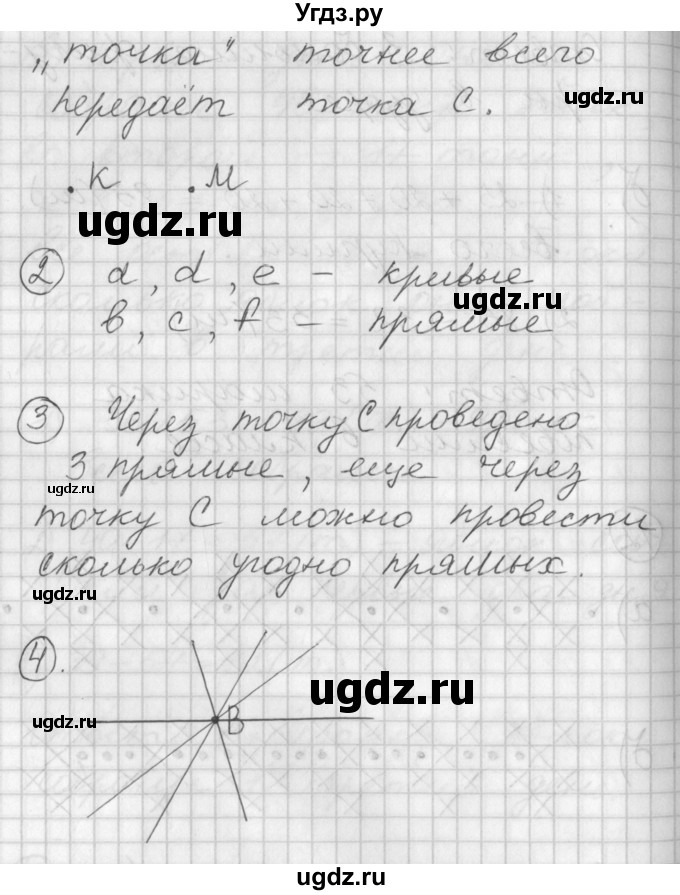 Угдз.ру
„точка“ точнее всего
передаёт точка С.
ugdz.ru
.К .М
ugdz.ru
② a, d, e – кривые
ugdz.ru
b, c, f – прямые
③ Через точку С проведено
3 прямые, еще через
ugdz.ru
точку С можно провести
сколько угодно прямых.
ugdz.ru
④.
ugdz.ru
ugdz.ru
В
ugdz.ru